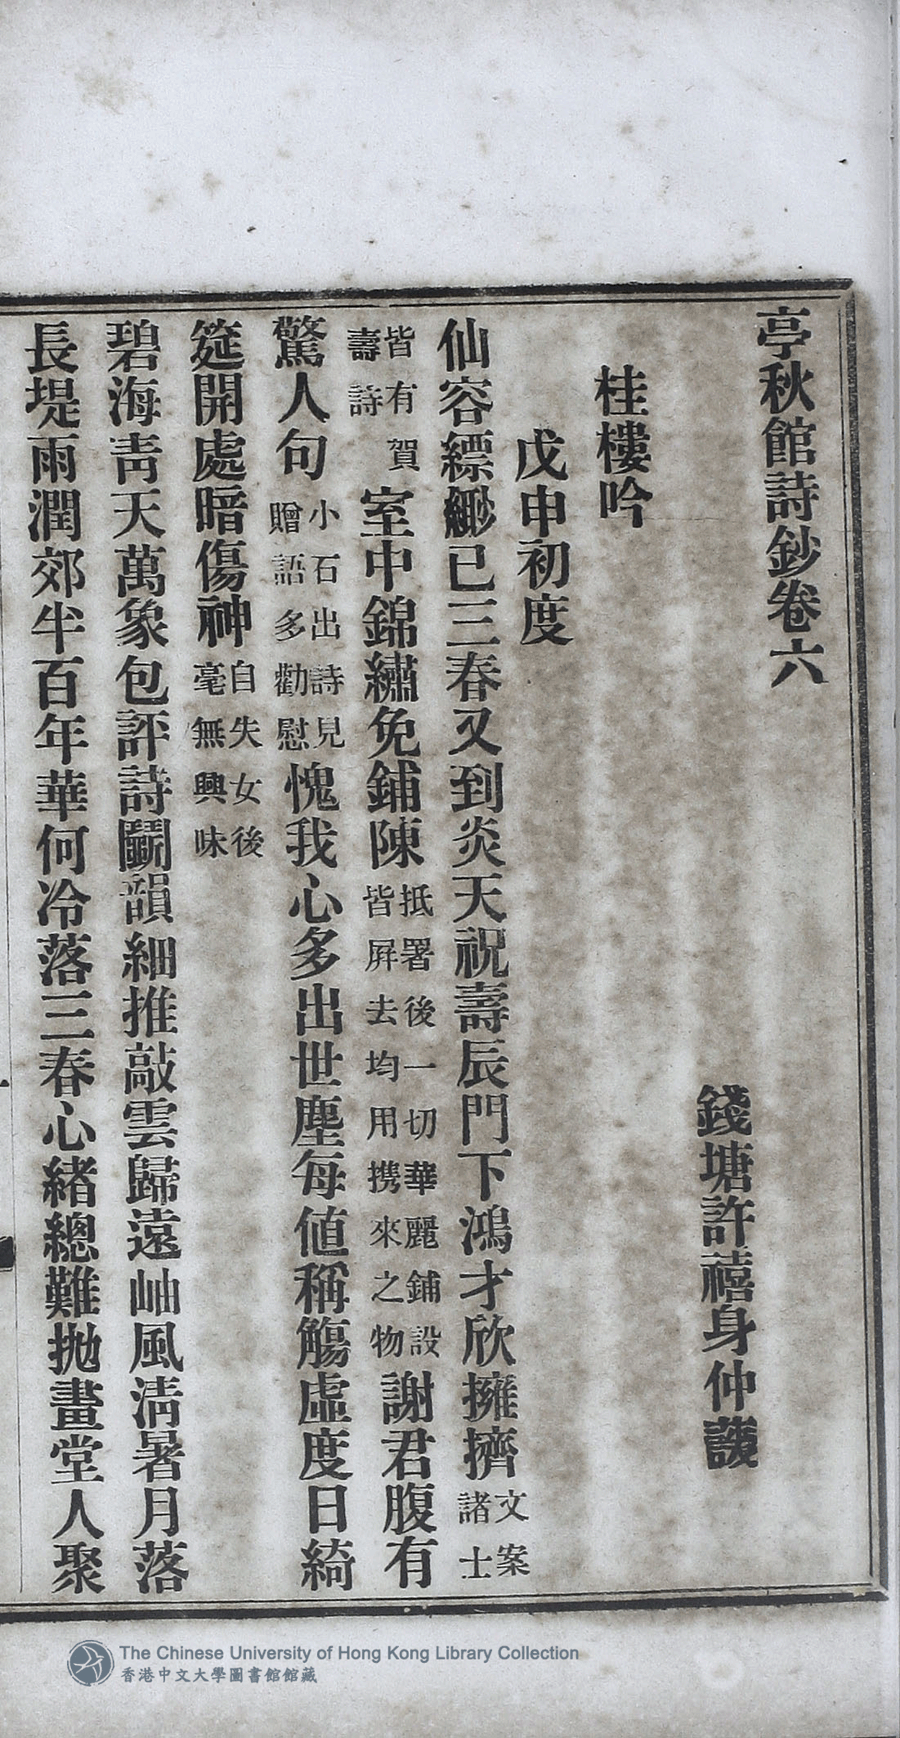 亭秋館詩鈔卷六
錢塘許禧身仲諼
桂樓吟
戊申初度
仙容縹緲已三春又到炎天祝壽辰門下鴻才欣擁擠文案諸士
皆有賀壽詩室中錦繡免鋪陳抵署後一切華麗鋪設皆屏去均用携來之物謝君腹有
驚人句小石出詩見贈語多勸慰愧我心多出世塵每値稱觴虛度日綺
筵開處暗傷神自失女後毫無興味
碧海靑天萬象包評詩鬬韻細推敲雲歸遠岫風淸暑月落
長堤雨潤郊半百年華何冷落三春心緒總難拋畫堂人聚
The Chinese University of Hong Kong Library Collection
香港中文大學圖書館館藏